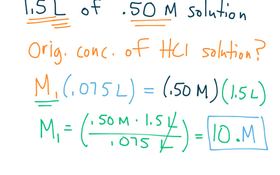 1.5 L of .50 M solution
Orig. conc. of HCl solution?
M₁ (.075 L) = (.50 M)(1.5 L)
M₁ = (.50 M · 1.5 L / .075 L) = 10. M